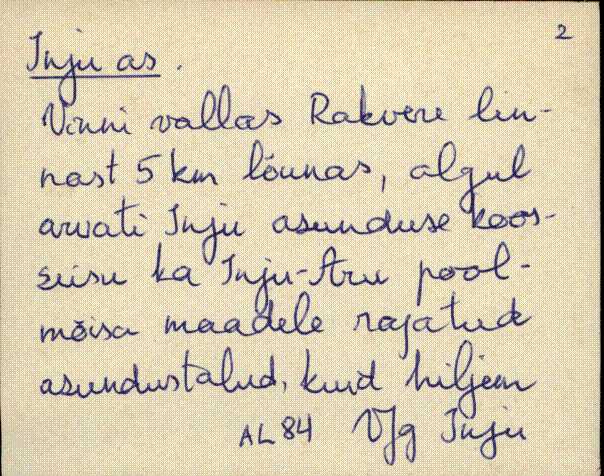 2
Inju as.
Vinni vallas Rakvere lin-
nast 5 km lõunas, algul
arvati Inju asunduse koos-
seisu ka Inju-Aru pool-
mõisa maadele rajatud
asundustalud, kuid hiljem
AL 84 VJg Inju